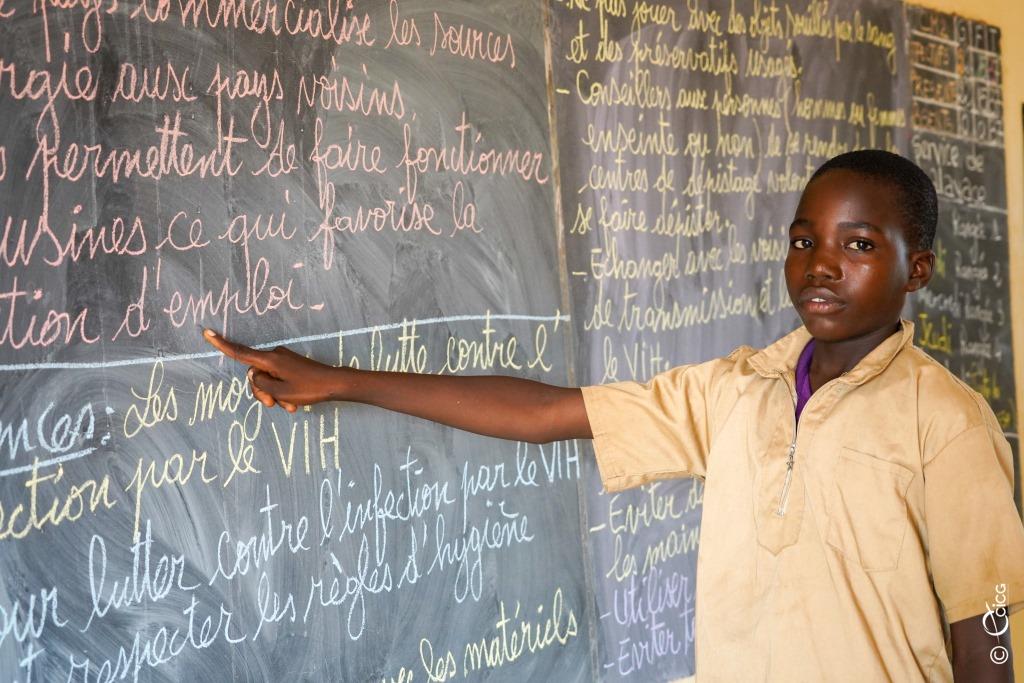 pays commercialise les sources
rgie aux pays voisins.
permettent de faire fonctionner
usines ce qui favorise la
tion d'emploi-
nces: Les moy de lutte contre l'
ection par le VIH
our lutter contre l'infection par le VIH
respecter les règles d'hygiène
les matériels
- Ne pas jouer avec des objets souillés par le sang
et des préservatifs usagés.
- Conseillers aux personnes hommes ou femmes
enseinte ou non de se rendre
centres de depistage volont
se faire dépister.
- Echanger avec les voisi
de transmission et l
le VIH
- Eviter d
les main
- Utiliser
- Eviter t
Service de
balayage
Rangée 1
Rangée 2
Rangée 3
Jeudi
© CAICG